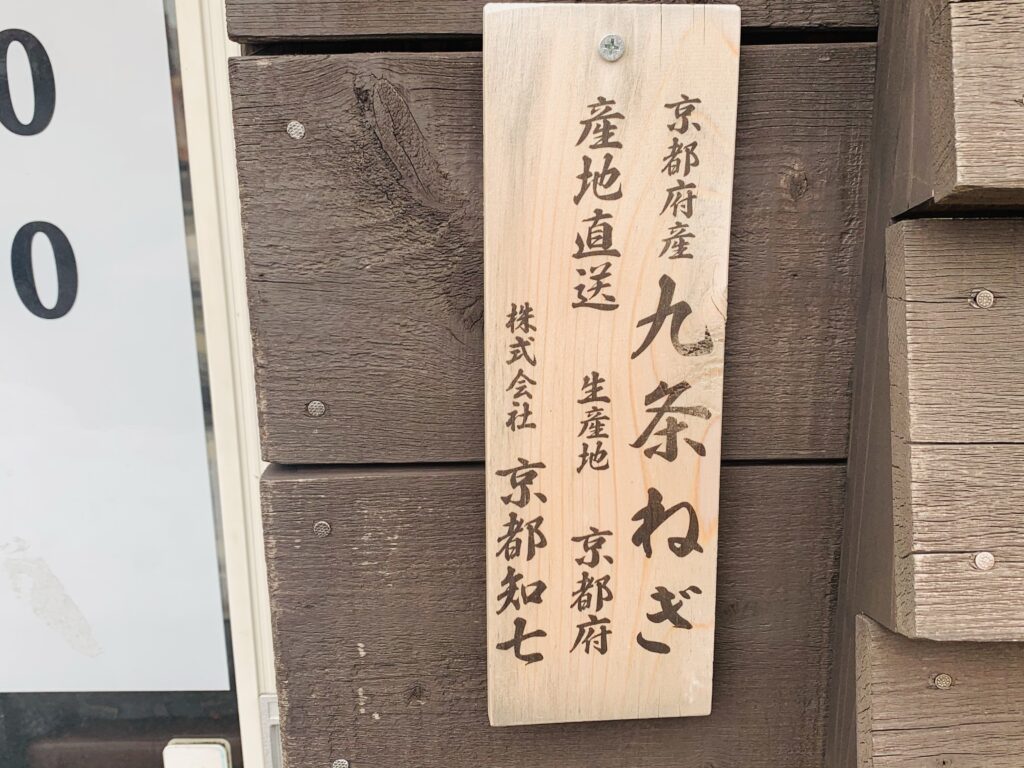 京都府産 九条ねぎ
産地直送 生産地 京都府
株式会社 京都知七
0
0